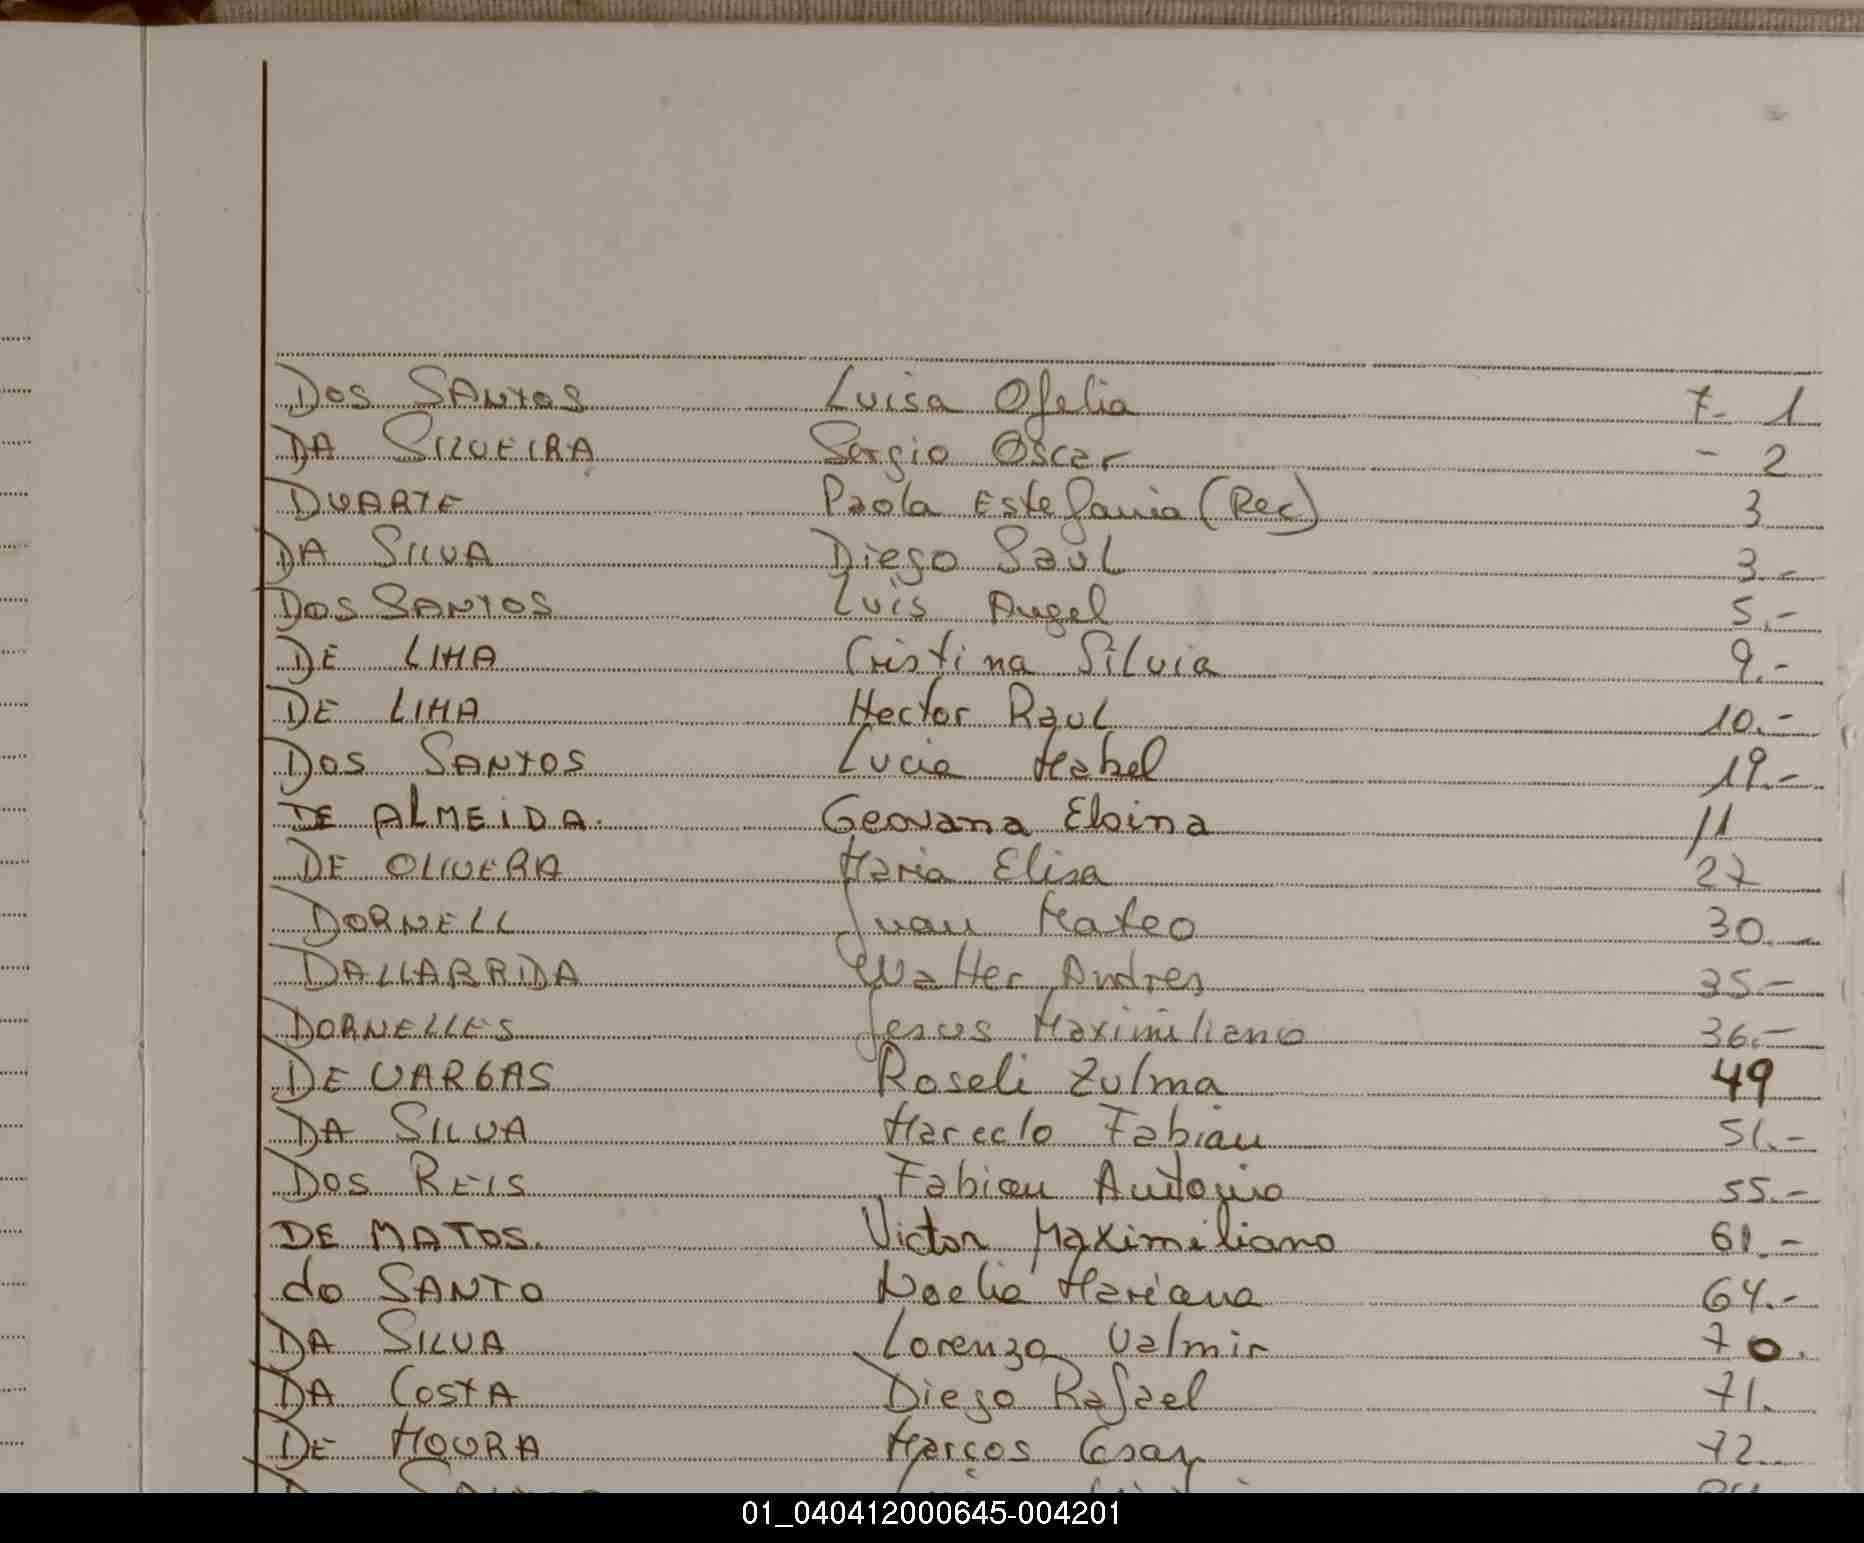 DOS SANTOS Luisa Ofelia 7- 1
DA SILVEIRA Sergio Oscar - 2
DUARTE Paola Estefania (Rec) 3
DA SILVA Diego Saul 3.-
DOS SANTOS Luis Angel 5.-
DE LIMA Cristina Silvia 9.-
DE LIMA Hector Raul 10.-
DOS SANTOS Lucia Mabel 19.-
DE ALMEIDA. Geovana Eloina 11
DE OLIVERA Maria Elisa 27
DORNELL Juan Mateo 30.-
DALLABRIDA Walter Andres 35.-
DORNELLES Jesus Maximiliano 36.-
DE VARGAS Roseli Zulma 49
DA SILVA Marcelo Fabian 51.-
DOS REIS Fabian Antonio 55.-
DE MATOS. Victor Maximiliano 61.-
do SANTO Noelia Mariana 64.-
DA SILVA Lorenzo Valmir 70.
DA COSTA Diego Rafael 71.
DE MOURA Marcos Cesar 72.
01_040412000645-004201